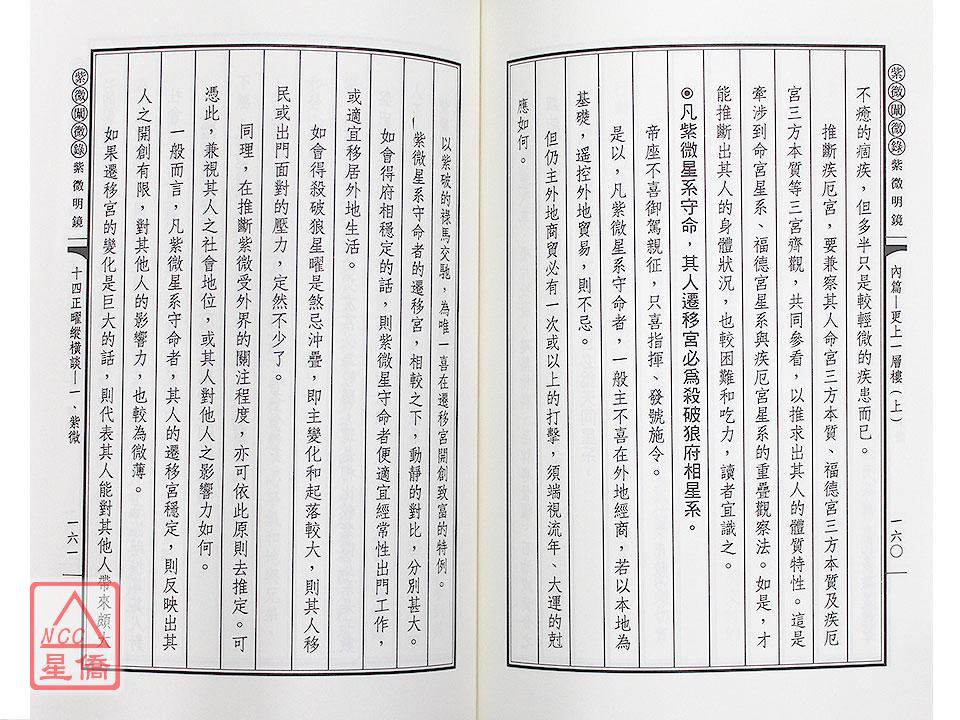 紫微闡微錄 紫微明鏡
內篇—更上一層樓（上）
一六〇
不癒的痼疾，但多半只是較輕微的疾患而已。
推斷疾厄宮，要兼察其人命宮三方本質、福德宮三方本質及疾厄
宮三方本質等三宮齊觀，共同參看，以推求出其人的體質特性。這是
牽涉到命宮星系、福德宮星系與疾厄宮星系的重疊觀察法。如是，才
能推斷出其人的身體狀況，也較困難和吃力，讀者宜識之。
◉凡紫微星系守命，其人遷移宮必為殺破狼府相星系。
帝座不喜御駕親征，只喜指揮、發號施令。
是以，凡紫微星系守命者，一般主不喜在外地經商，若以本地為
基礎，遙控外地貿易，則不忌。
但仍主外地商貿必有一次或以上的打擊，須端視流年、大運的尅
應如何。
以紫破的祿馬交馳，為唯一喜在遷移宮開創致富的特例。
紫微星系守命者的遷移宮，相較之下，動靜的對比，分別甚大。
如會得府相穩定的話，則紫微星守命者便適宜經常性出門工作，
或適宜移居外地生活。
如會得殺破狼星曜是煞忌沖疊，即主變化和起落較大，則其人移
民或出門面對的壓力，定然不少了。
同理，在推斷紫微受外界的關注程度，亦可依此原則去推定。可
憑此，兼視其人之社會地位，或其人對他人之影響力如何。
一般而言，凡紫微星系守命者，其人的遷移宮穩定，則反映出其
人之開創有限，對其他人的影響力，也較為微薄。
如果遷移宮的變化是巨大的話，則代表其人能對其他人帶來頗大
紫微闡微錄 紫微明鏡
十四正曜縱橫談—一、紫微
一六一
NCC
星僑